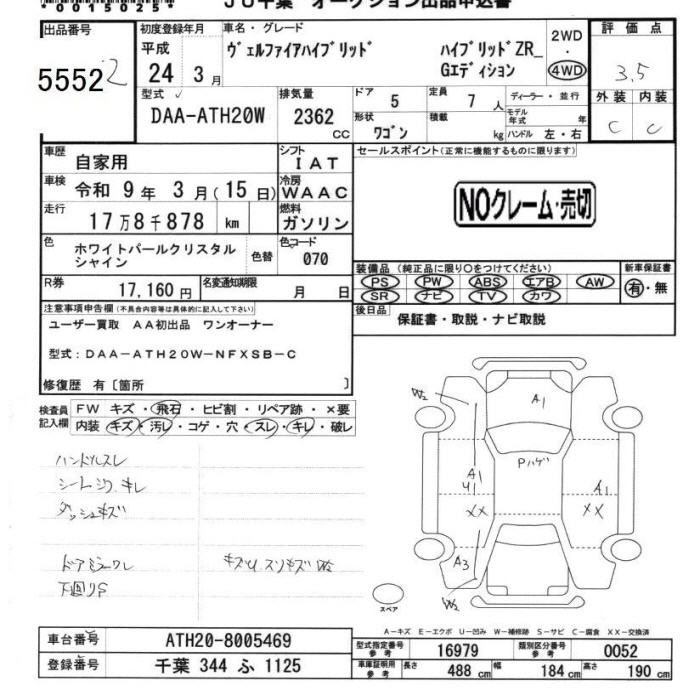 *00015025*
JU千葉 オークション出品申込書
出品番号
5552
初度登録年月
平成
24年 3月
車名・グレード
ヴェルファイアハイブリッド ハイブリッドZR_
Gエディション
2WD
・
4WD
評価点
3.5
型式
DAA-ATH20W
排気量
2362 CC
ドア 5
定員 7人
ディーラー・並行
形状 ワゴン
積載 kg
モデル年式 年
ハンドル 左・右
外装 内装
C C
車歴 自家用
シフト IAT
セールスポイント(正常に機能するものに限ります)
車検 令和 9年 3月(15日)
冷房 WAAC
NOクレーム・売切
走行 17万8千878 km
燃料 ガソリン
色 ホワイトパールクリスタル
シャイン
色替
色コード
070
装備品(純正品に限り〇をつけてください)
PS PW ABS エアB AW
SR ナビ TV カワ
新車保証書
有・無
R券 17,160円
名変通知期限
月 日
後日品 保証書・取説・ナビ取説
注意事項申告欄(不具合内容等は具体的に記入して下さい)
ユーザー買取 AA初出品 ワンオーナー
型式:DAA-ATH20W-NFXSB-C
修復歴 有〔箇所 〕
検査員記入欄
FW キズ・飛石・ヒビ割・リペア跡・×要
内装 キズ・汚レ・コゲ・穴・スレ・キレ・破レ
ハンドルスレ
シートシワ キレ
ダッシュキズ
ドアミラーワレ
下回りS
W2
A1
Pハゲ
A1
U1
XX
A1
XX
A3
W2
スペア
A-キズ E-エクボ U-凹み W-補修跡 S-サビ C-腐食 XX-交換済
車台番号 ATH20-8005469
型式指定番号 参考 16979
類別区分番号 参考 0052
登録番号 千葉 344 ふ 1125
車庫証明用 参考
長さ 488 cm
幅 184 cm
高さ 190 cm